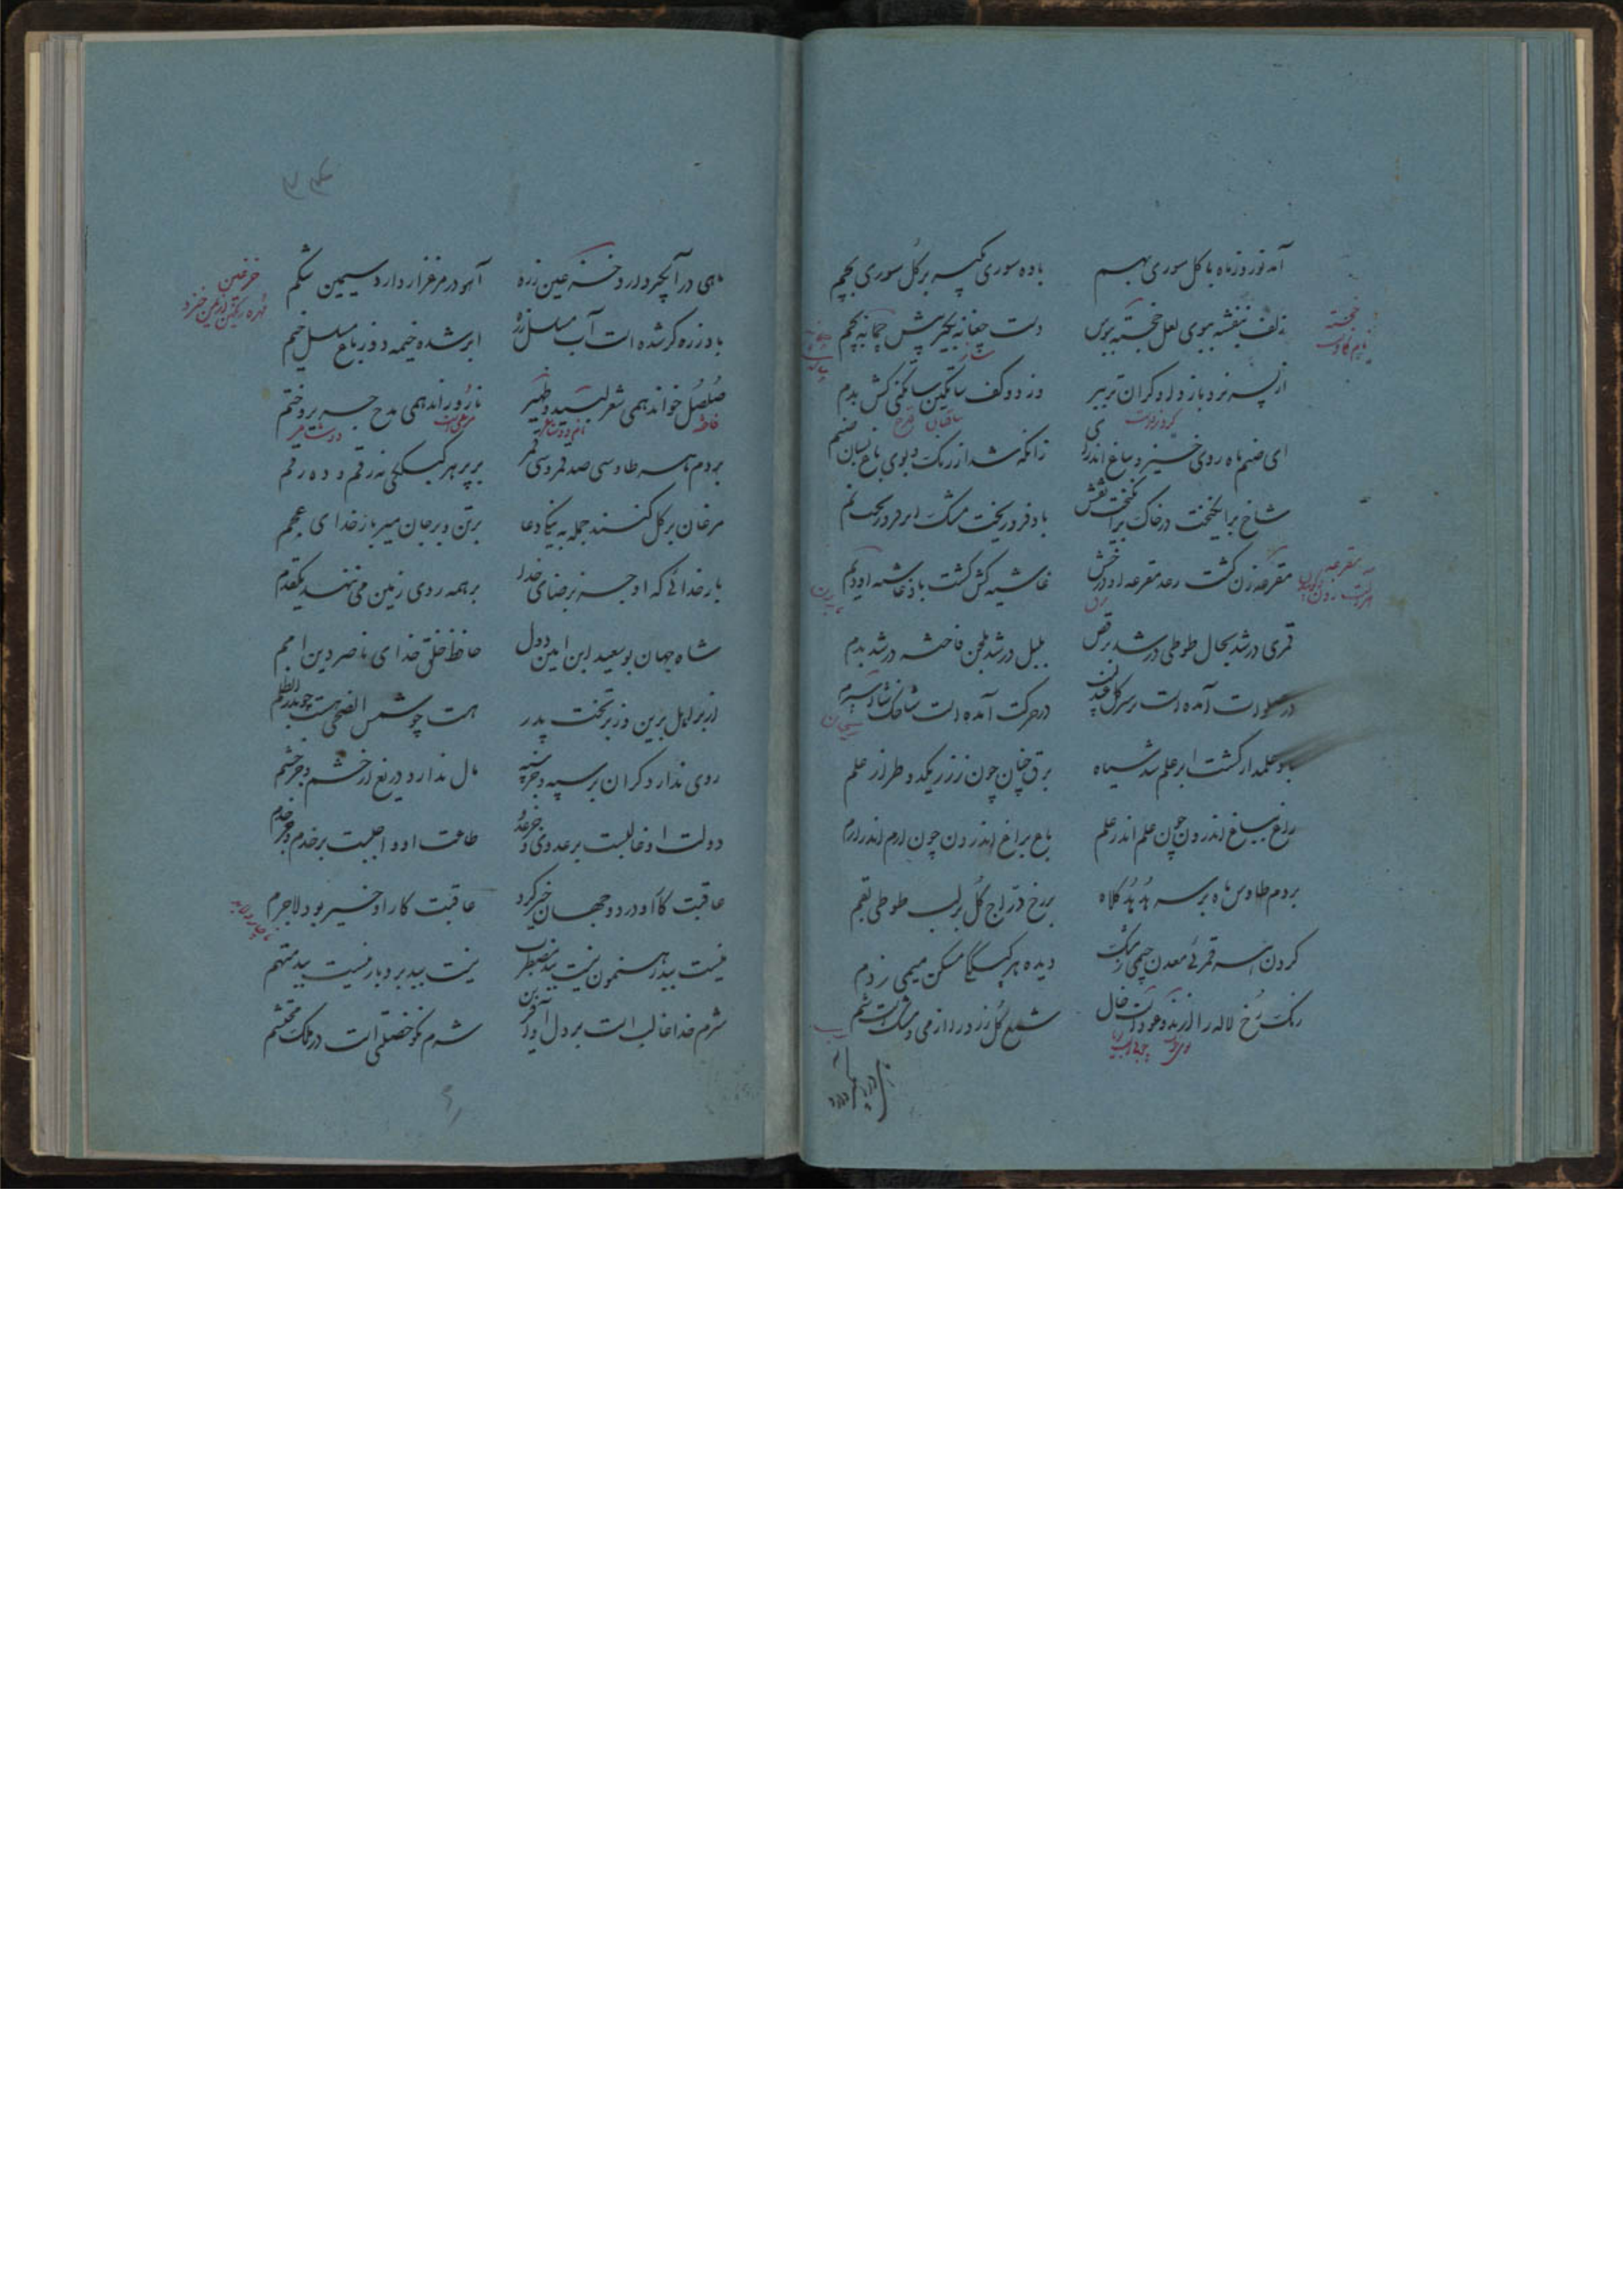 آمد نوروز ماه با گل سوری بهم    باده سوری گیر بر گل سوری بچم
زلف بنفشه ببوی لعل خجسته ببوس    دست چغانه بگیر پیش چمانه بچم
از پسر نرد باز داو گران تر ببر    وز دو کف ساتگین ساتگنی کش بدم
ای صنم ماه روی خیز و بباغ اندرای    زانکه شد از رنگ و بوی باغ بسان صنم
شاخ برانگیخت در خاک برانگیخت نقش    باد فرو ریخت مشک ابر فرو ریخت نم
مقرعه زن گشت رعد مقرعه او درخش    غاشیه کش گشت باد غاشیه او دیم
قمری درشد بحال طوطی درشد برقص    بلبل درشد بلحن فاخته درشد بدم
در صلوات آمده است بر سر گل عندلیب    در حرکت آمده است شاخک شاه اسپرم
باد علمدار گشت ابر علم شد سیاه    برق چنان چون ز زر یک دو طراز علم
راغ بباغ اندرون چون علم اندر علم    باغ براغ اندرون چون ارم اندر ارم
بر دم طاوس ماه بر سر هدهد کلاه    بر رخ دراج گل بر لب طوطی بقم
گردن هر قمرئی معدن جیمی ز مشک    دیده هر کبککی مسکن میمی ز دم
رنگ رخ لاله را از ند و عود است خال    شمع گل زرد را از می و مشک است شم
خجسته
مقرعه
ماهی در آبگیر دارد خز عین زره    آهو در مرغزار دارد سیمین شکم
باد زره گر شده است آب مسلسل زره    ابر شده خیمه دوز باغ مسلسل خیم
صلصل خواند همی شعر لبید و زهیر    نارو راند همی مدح جریر و خثم
بر دم هر طاوسی صد قمر و سی قمر    بر پر هر کبککی نه رقم و ده رقم
مرغان بر گل کنند جمله به نیکی دعا    بر تن و بر جان میر بارخدای عجم
بارخدائی که او جز برضای خدا    بر همه روی زمین می ننهد یکقدم
شاه جهان بوسعید ابن امین دول    حافظ خلق خدای ناصر دین امم
از بر اهل برین وز بر تخت پدر    هست چو شمس الضحی هست چو بدر الظلم
روی ندارد گران بر سپه و جز سپه    مال ندارد دریغ از حشم و جز حشم
دولت او غالبست بر عدو و جز عدو    طاعت او واجبست بر خدم و جز خدم
عاقبت کار او در دو جهان خیر کرد    عاقبت کار او خیر بود لاجرم
نیست ببد رهنمون نیست ببد مضطرب    نیست ببد بردبار نیست ببد متهم
شرم خدا غالب است بر دل او آفرین    شرم نکو خصلتی است در ملک محتشم
خز عین